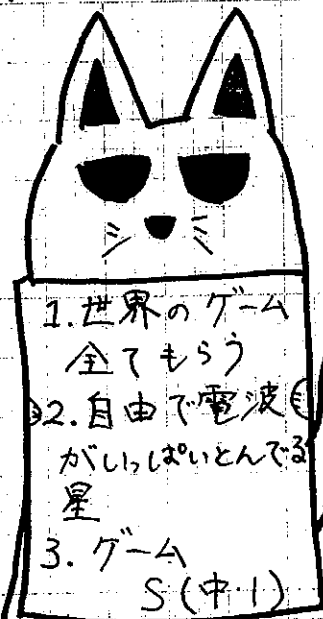 1. 世界のゲーム
全てもらう
2. 自由で電波
がいっぱいとんでる
星
3. ゲーム
S(中・1)